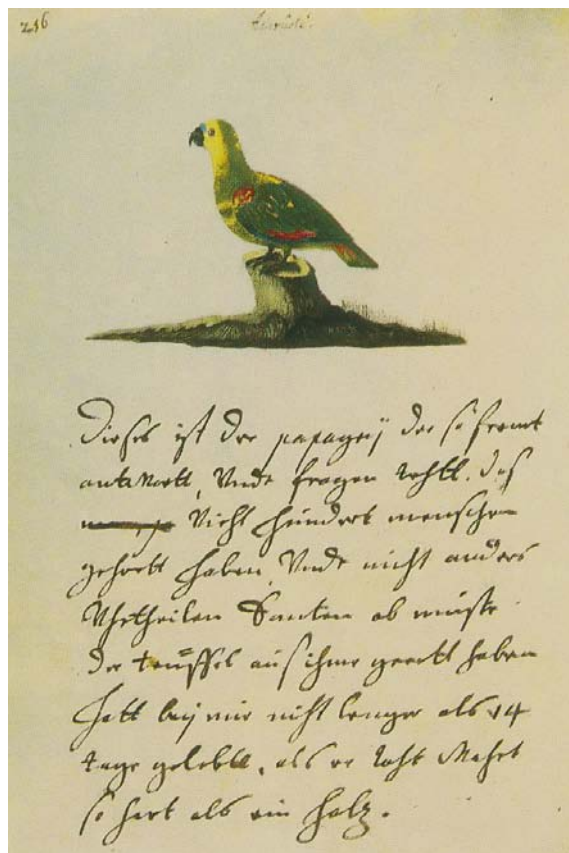 256
Dieses ist der papageij der so fremt
antwortt, Vnde fragen thutt. das
Vieht hundert menschen
gehortt haben, Vnde nicht anders
Vhrtheilen konten ob müste
der teüffel aus ihme geredt haben
hatt beij mir nicht lenger als 14
tage gelebtt, als er toht Wahre
so hart als ein holz.